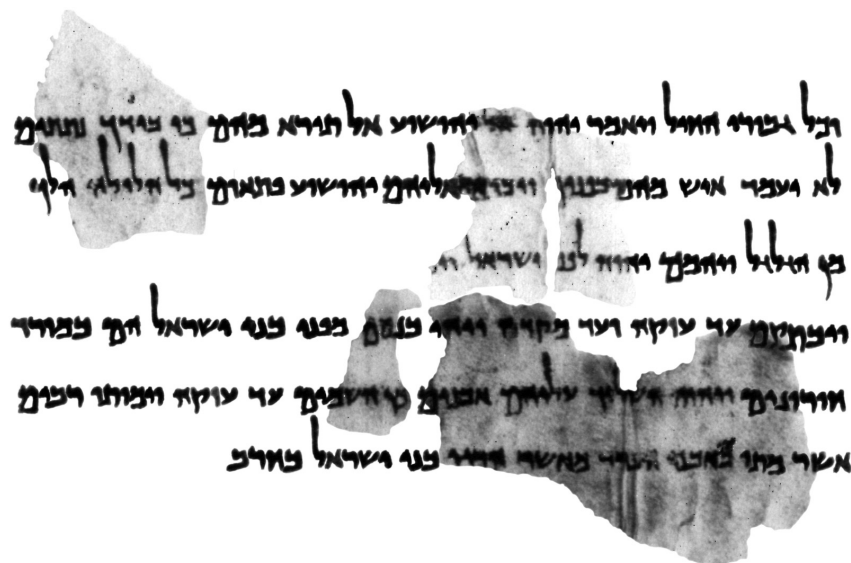 וכל גבורי החיל ויאמר יהוה אל יהושוע אל תירא מהם כי בידך נתתים
לא יעמד איש מהם בפניך ויבוא אליהם יהושוע פתאום כל הלילה הלך
מן הגלגל ויהמם יהוה לפני ישראל
עד עזקה ועד מקדה ויהי בנסם מפני בני ישראל הם במורד
חורונים ויהוה השליך עליהם אבנים מן השמים עד עזקה וימותו רבים
אשר מתו באבני הברד מאשר הרגו בני ישראל בחרב